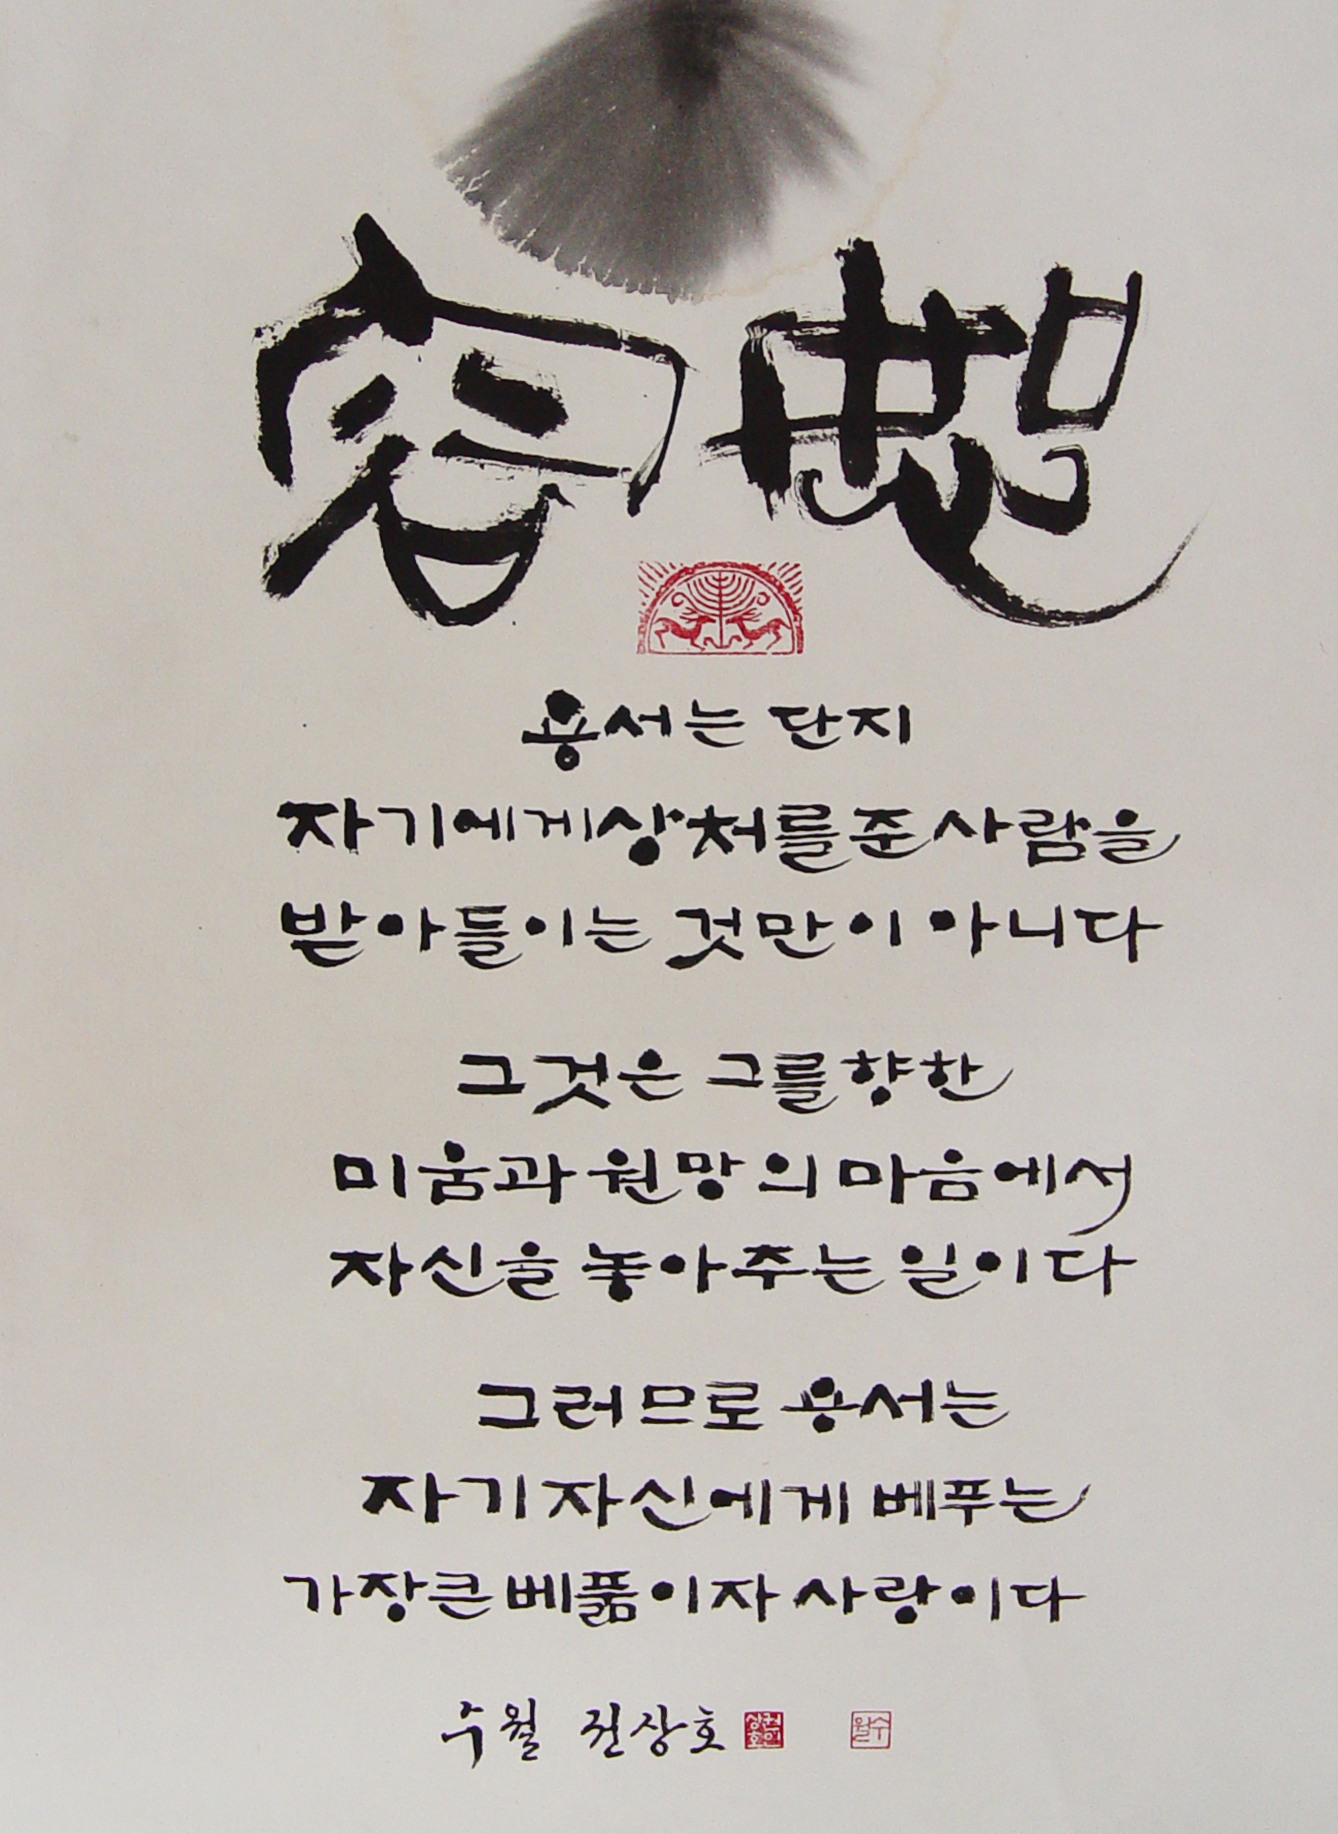 容恕
용서는 단지
자기에게상처를준사람을
받아들이는 것만이 아니다
그것은 그를향한
미움과 원망의 마음에서
자신을 놓아주는 일이다
그러므로 용서는
자기자신에게 베푸는
가장큰베풂이자 사랑이다
수월 권상호
수월